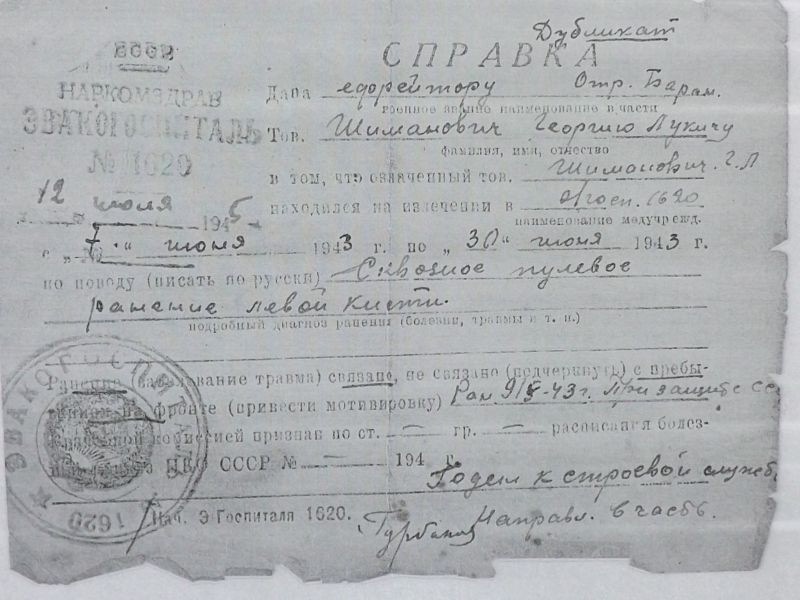 Дубликат
СПРАВКА
НАРКОМЗДРАВ
ЭВАКОГОСПИТАЛЬ
№ 1620
12 июля 1945
Дана ефрейтору Отр. Баран.
военное звание наименование части
Тов. Шиманович Георгию Лукичу
фамилия, имя, отчество
в том, что означенный тов. Шиманович. Г. Л
находился на излечении в 1620
наименование медучрежд.
с „7“ июня 1943 г. по „30“ июня 1943 г.
по поводу (писать по русски) Сквозное пулевое
ранение левой кисти.
подробный диагноз ранения (болезни, травмы и т. п.)
Ранение (заболевание травма) связано, не связано (подчеркнуть) с пребы-
на фронте (привести мотивировку) Ран 9/ -43 г. При защите СС
комиссией признан по ст. — гр. — расписания болез-
НКО СССР № — 194 г.
Годен к строевой служб
Направл. в часть.
Нач. Э-Госпиталя 1620.
ЭВАКОГОСПИТАЛЬ 1620